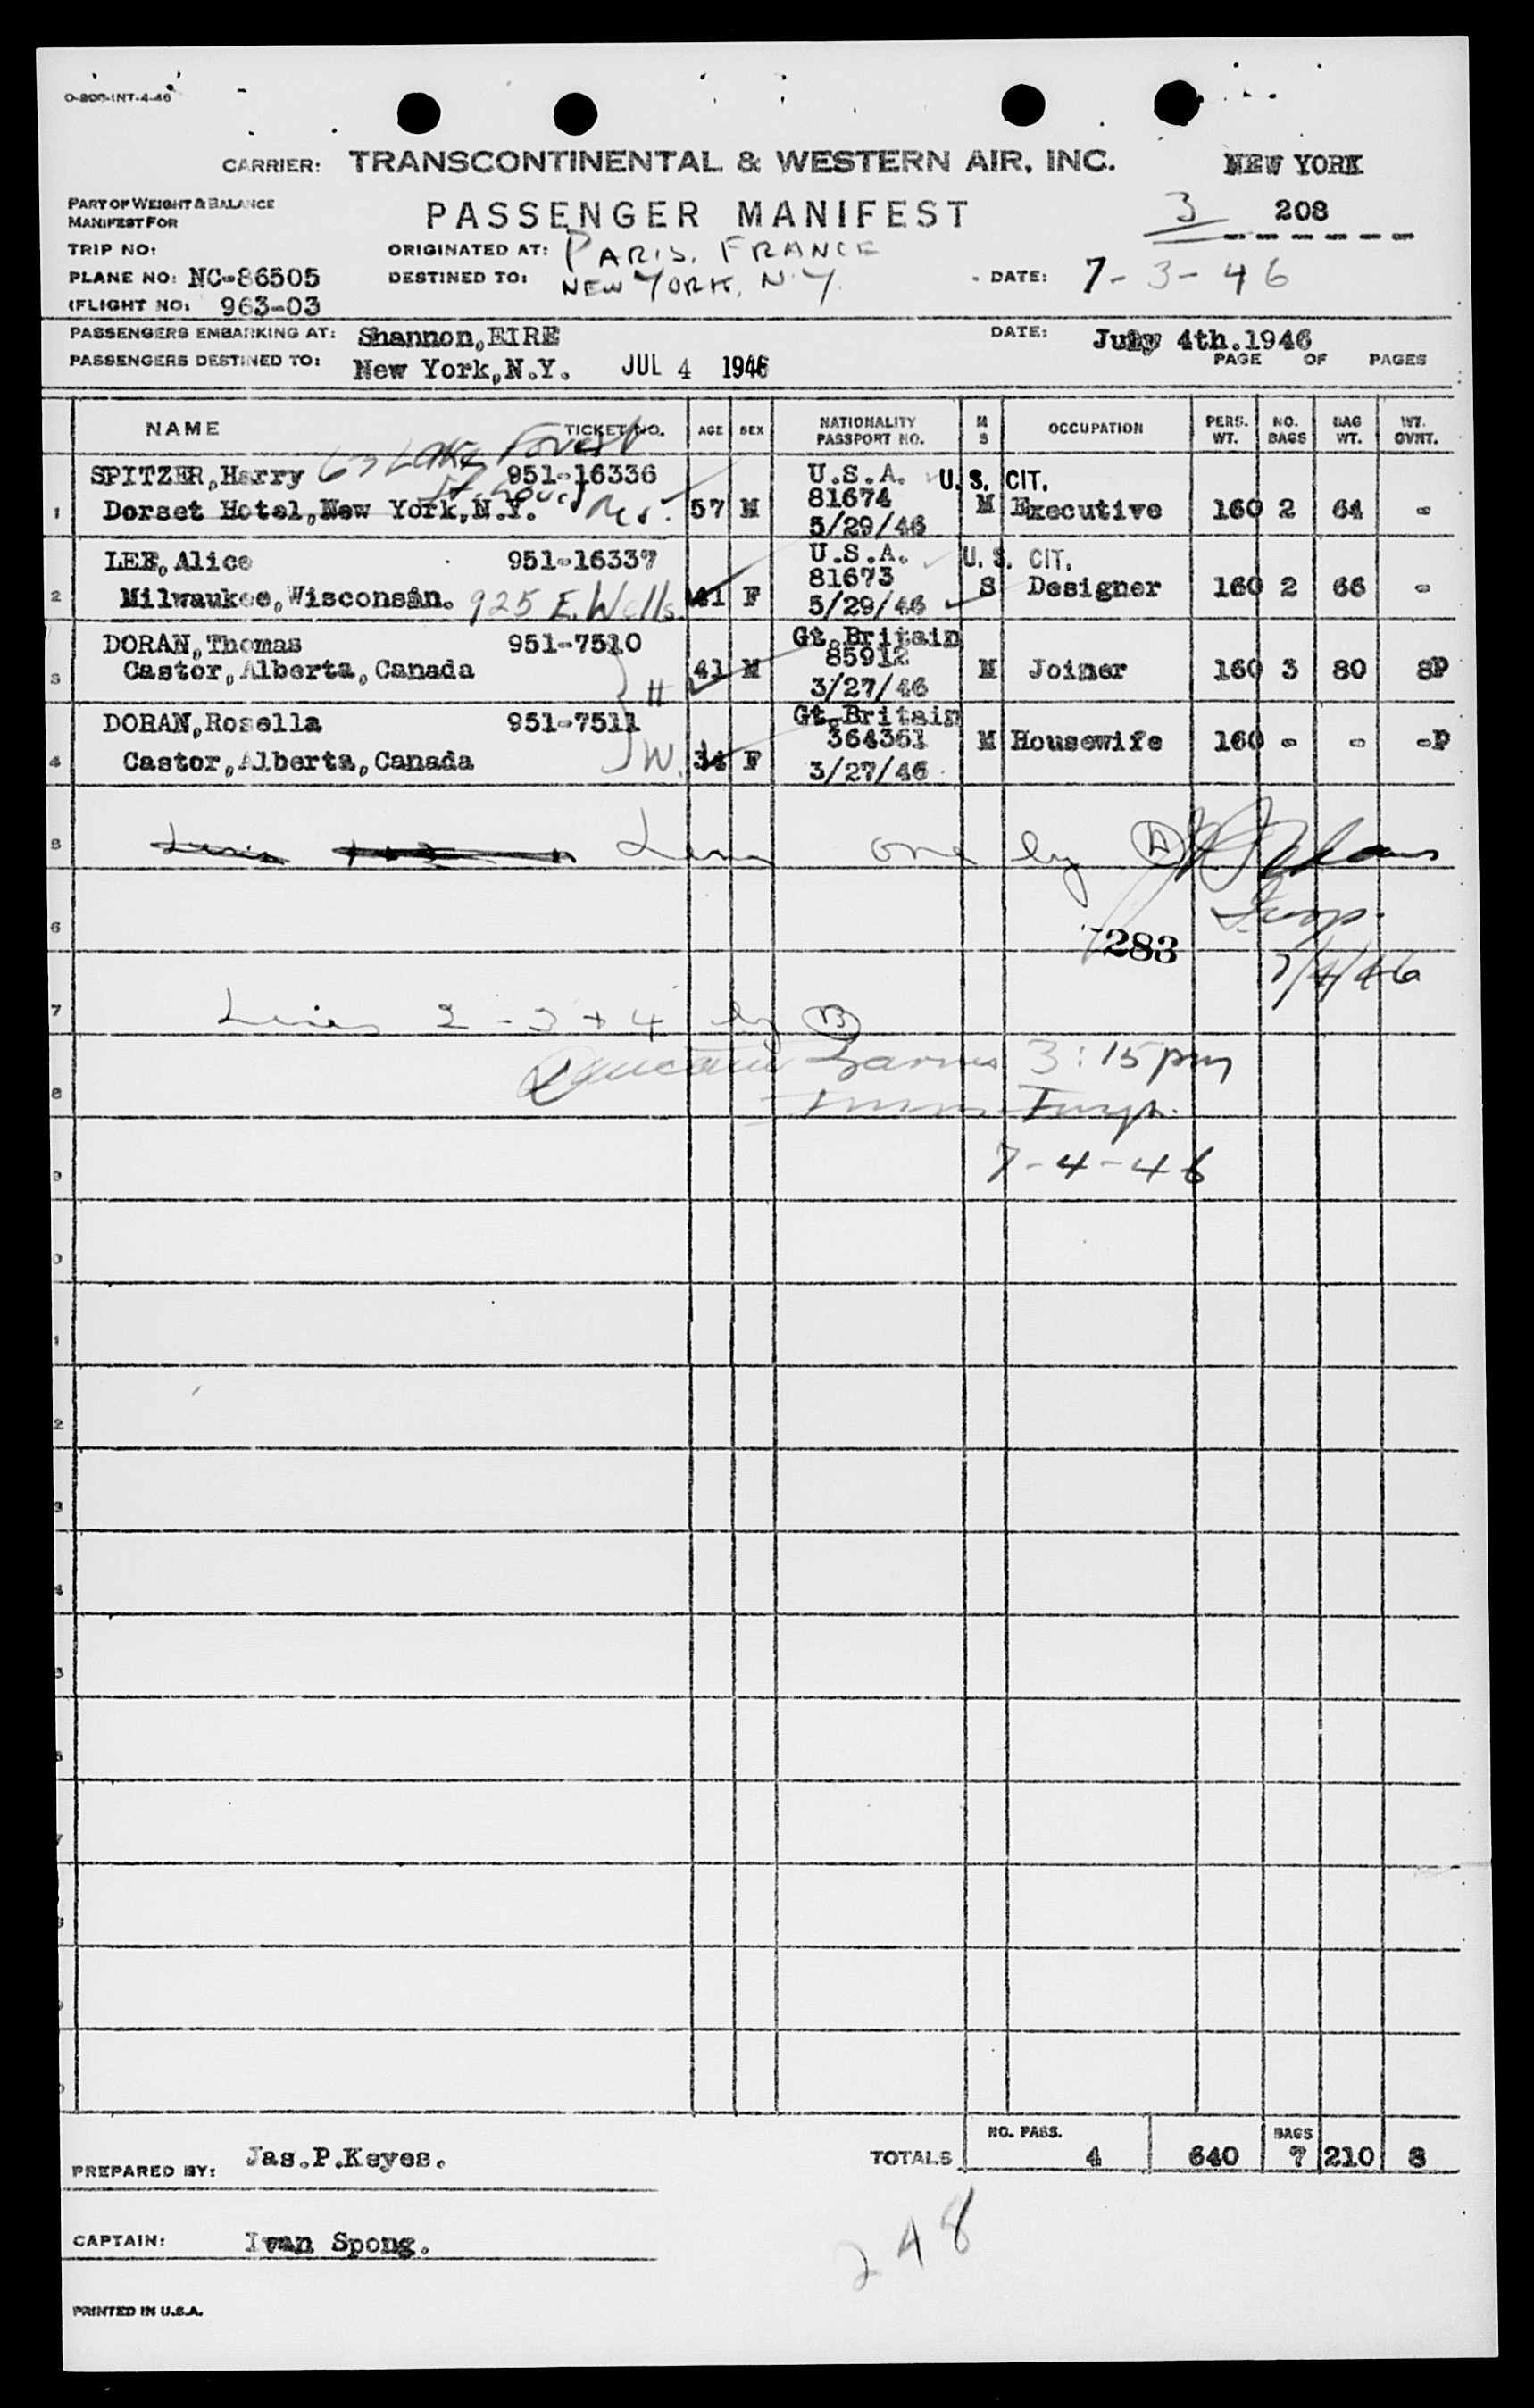 O-206-INT-4-46
CARRIER: TRANSCONTINENTAL & WESTERN AIR, INC. NEW YORK
PART OF WEIGHT & BALANCE
MANIFEST FOR
PASSENGER MANIFEST 3 208
TRIP NO: ORIGINATED AT: PARIS, FRANCE
PLANE NO: NC-86505 DESTINED TO: NEW YORK, N.Y. DATE: 7-3-46
(FLIGHT NO: 963-03
PASSENGERS EMBARKING AT: Shannon,EIRE DATE: July 4th.1946
PASSENGERS DESTINED TO: New York,N.Y. JUL 4 1946 PAGE OF PAGES
NAME TICKET NO. AGE SEX NATIONALITY PASSPORT NO. M S OCCUPATION PERS. WT. NO. BAGS BAG WT. WT. OVNT.
SPITZER,Harry 63 Lake Forest 951-16336 U.S.A. U.S. CIT.
1 Dorset Hotel,New York,N.Y. St. Louis Mo. 57 M 81674 M Executive 160 2 64 -
5/29/46
LEE,Alice 951-16337 U.S.A. U.S. CIT.
2 Milwaukee,Wisconsin. 925 E. Wells. 41 F 81673 S Designer 160 2 66 -
5/29/46
DORAN,Thomas 951-7510 Gt.Britain
3 Castor,Alberta,Canada H 41 M 85912 M Joiner 160 3 80 8P
3/27/46
DORAN,Rosella 951-7511 Gt.Britain
4 Castor,Alberta,Canada W. 34 F 364361 M Housewife 160 - - -P
3/27/46
5 Line one by A
6 Insp.
283
7/4/46
7 Lines 2 - 3 + 4 by B
3:15 pm
8 Imm. Insp.
9 7-4-46
0
1
2
3
4
5
6
7
8
9
0
NO. PASS. BAGS
TOTALS 4 640 7 210 8
PREPARED BY: Jas.P.Keyes.
CAPTAIN: Ivan Spong.
248
PRINTED IN U.S.A.